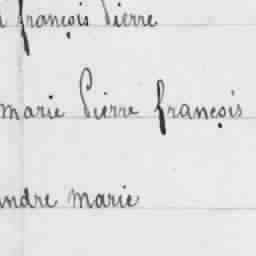 françois Pierre
marie Pierre françois
andre marie